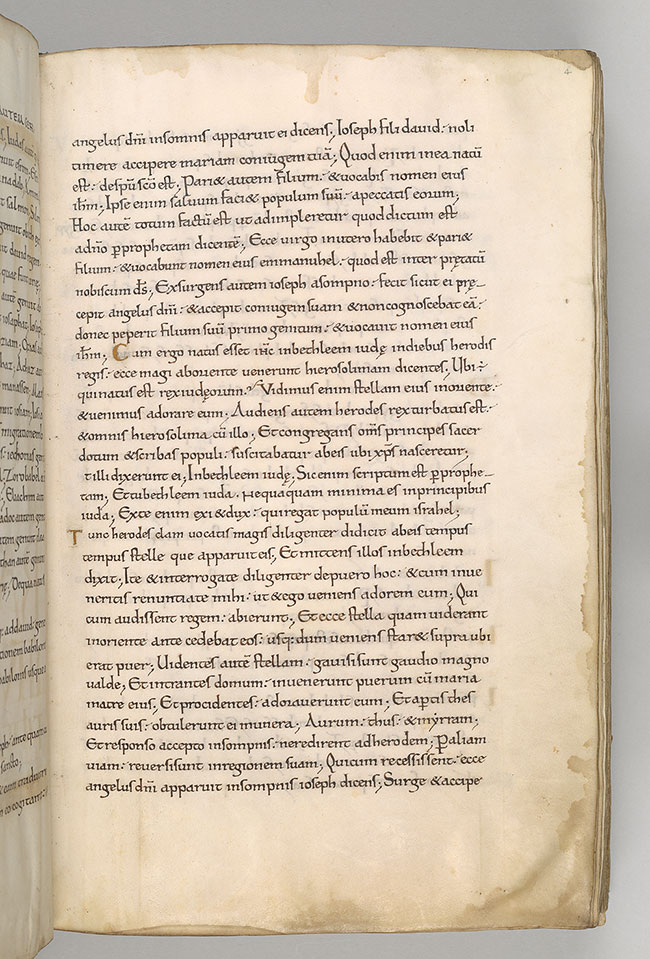 4
angelus dn̄i insomnis apparuit ei dicens; Ioseph fili dauid· noli
timere accipere mariam coniugem tuā; Quod enim inea natū
est· despū scō est; Pari& autem filium· &uocabis nomen eius
ih̄m; Ipse enim saluum faci& populum suū· apeccatis eorum;
Hoc autē totum factū est ut adimpleretur quod dictum est
adn̄o ꝑprophetam dicentē; Ecce uirgo inutero habebit &pari&
filium· &uocabunt nomen eius emmanuhel· quod est inter pretatū
nobiscum d̄s; Exsurgens autem ioseph asompno· fecit sicut ei pre
cepit angelus dn̄i· &accepit coniugem suam &noncognoscebat eā·
donec peperit filium suū primo genitum· &uocauit nomen eius
ih̄m; Cum ergo natus esset ih̄c inbethleem iudę indiebus herodis
regis· ecce magi aboriente uenerunt hierosolimam dicentes; Ubi
quinatus est rex iudęorum? Vidimus enim stellam eius inoriente·
&uenimus adorare eum; Audiens autem herodes rex turbatus est·
&omnis hierosolima cū illo; Et congregans om̄s principes sacer
dotum &scribas populi· suscitabatur abeis ubi xp̄s nasceretur;
tilli dixerunt ei; Inbethleem iudę; Sic enim scriptum est ꝑprophe-
tam; Et tubethleem iuda· nequaquam minima es inprincipibus
iuda; Exte enim exi& dux· qui regat populū meum israhel;
Tunc herodes clam uocatis magis diligenter didicit abeis tempus
tempus stelle que apparuit eis; Et mittens illos inbethleem
dixit; Ite &interrogate diligenter depuero hoc· &cum inue
neritis renuntiate mihi· ut &ego ueniens adorem eum; Qui
cum audissent regem· abierunt; Et ecce stella quam uiderant
inoriente ante cedebat eos· usq: dum ueniens star& supra ubi
erat puer; Uidentes autē stellam· gauisi sunt gaudio magno
valde; Et intrantes domum· inuenerunt puerum cū maria
matre eius; Et procidentes· adorauerunt eum; Et aꝑtis thes
auris suis· obtulerunt ei munera; Aurum· thus· &myrram;
Et responso accepto insompnis· neredirent adherodem; Ꝑaliam
uiam· reuersi sunt inregionem suam; Qui cum recessissent· ecce
angelus dn̄i apparuit insompnis ioseph dicens; Surge &accipe